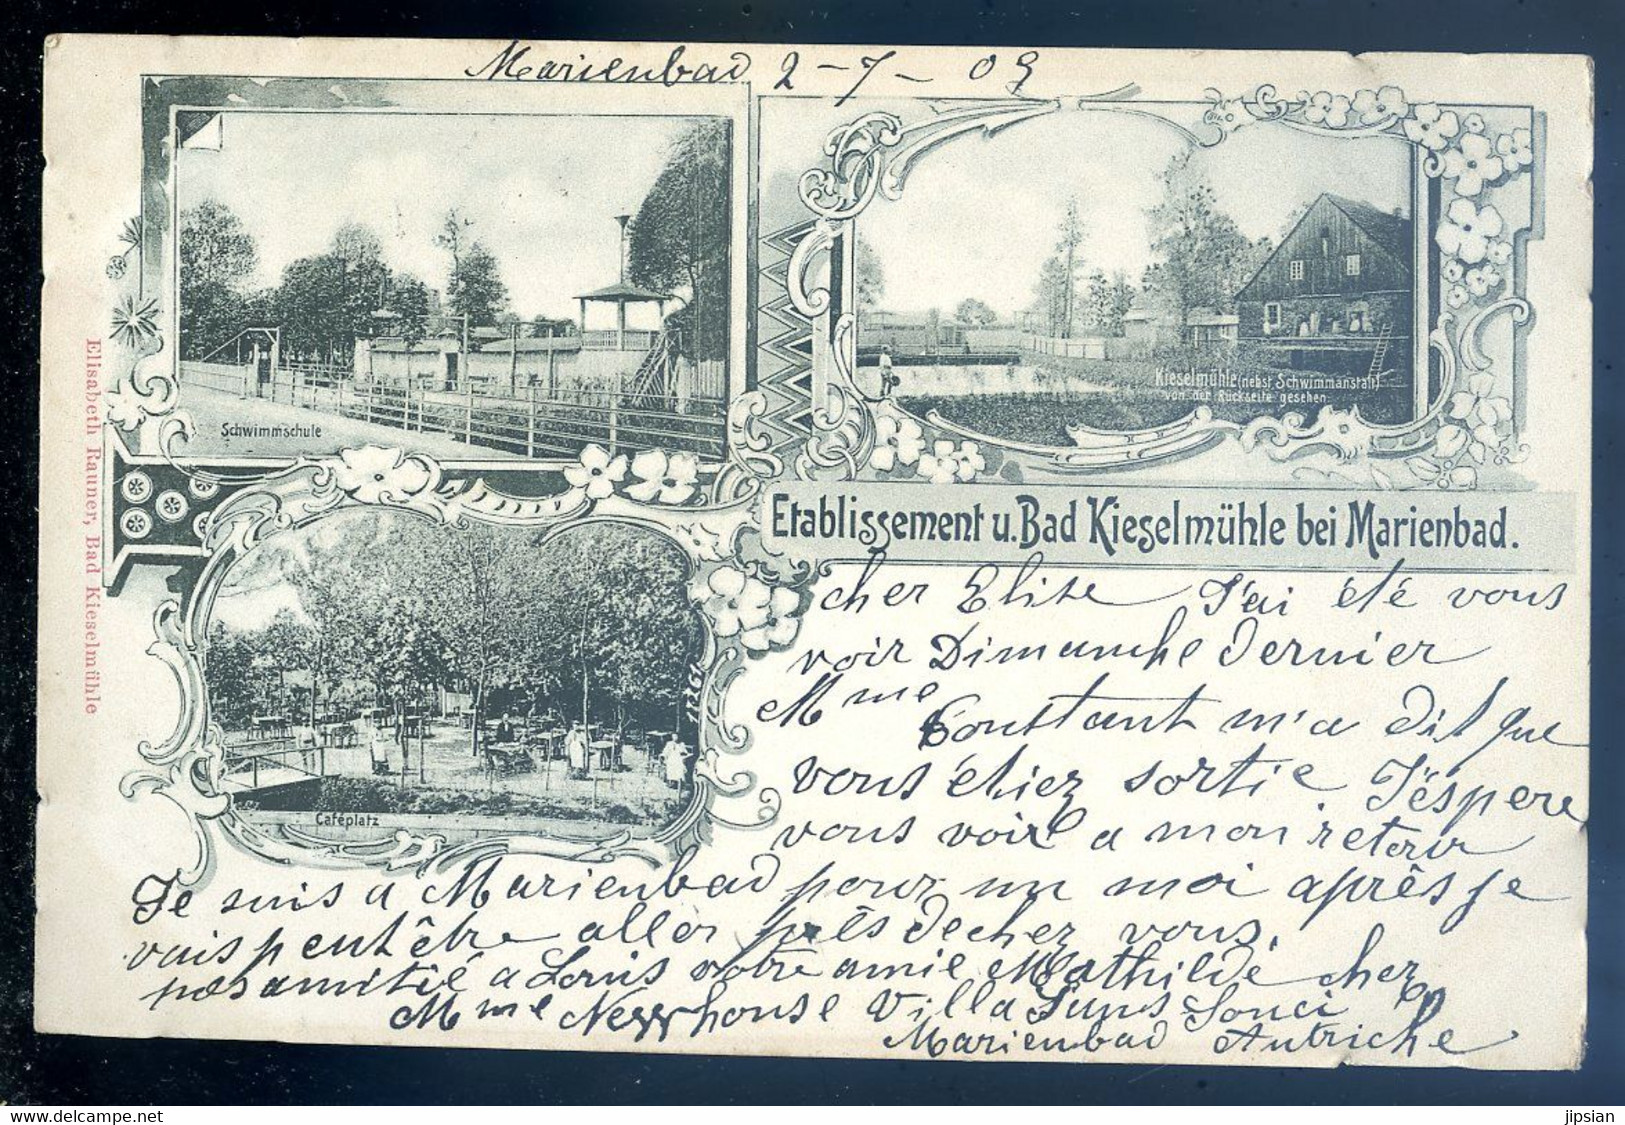 Marienbad 2-7-09
Schwimmschule
Kieselmühle (nebst Schwimmanstalt)
von der Rückseite gesehen.
Elisabeth Rauner, Bad Kieselmühle
Etablissement u. Bad Kieselmühle bei Marienbad.
Caféplatz
cher Elise J'ai été vous
voir Dimanche dernier
Mme Constant m'a dit que
vous étiez sortie J'éspere
vous voir a mon retour
Je suis a Marienbad pour un moi après je
vais peut être aller près decher vous.
pas amitié a Louis votre amie Mathilde chez
Mme Villa Sans Souci
Marienbad Autriche
jipsian